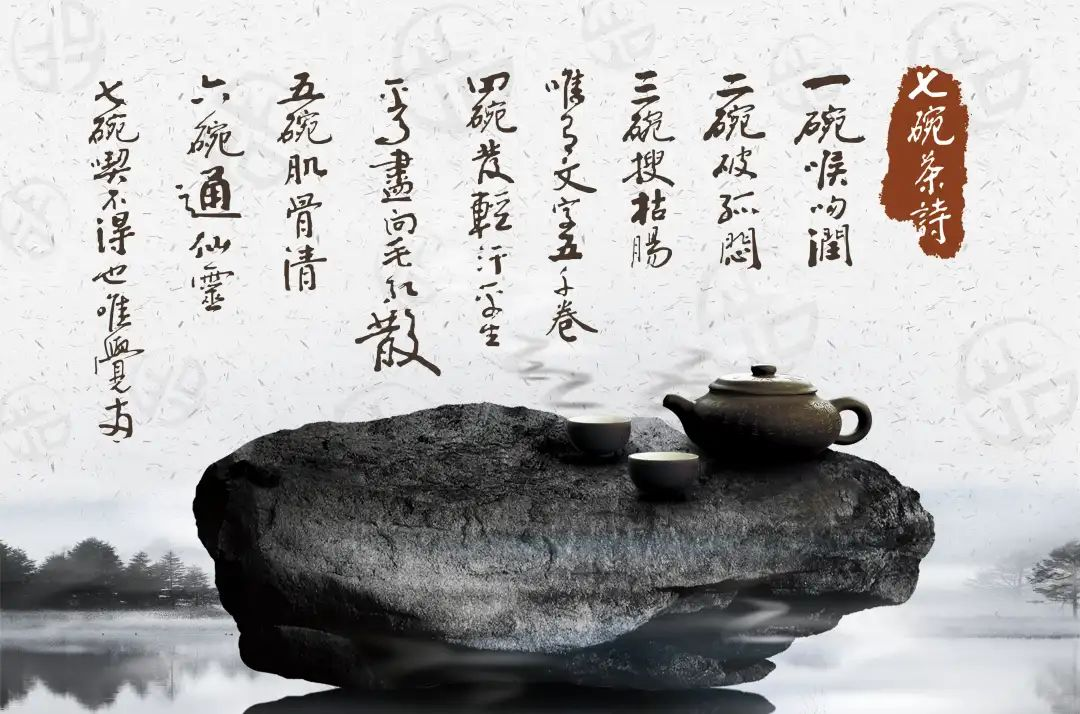 七碗茶詩
一碗喉吻潤
二碗破孤悶
三碗搜枯腸
唯有文字五千卷
四碗發輕汗平生
平事盡向毛孔散
五碗肌骨清
六碗通仙靈
七碗喫不得也唯覺兩